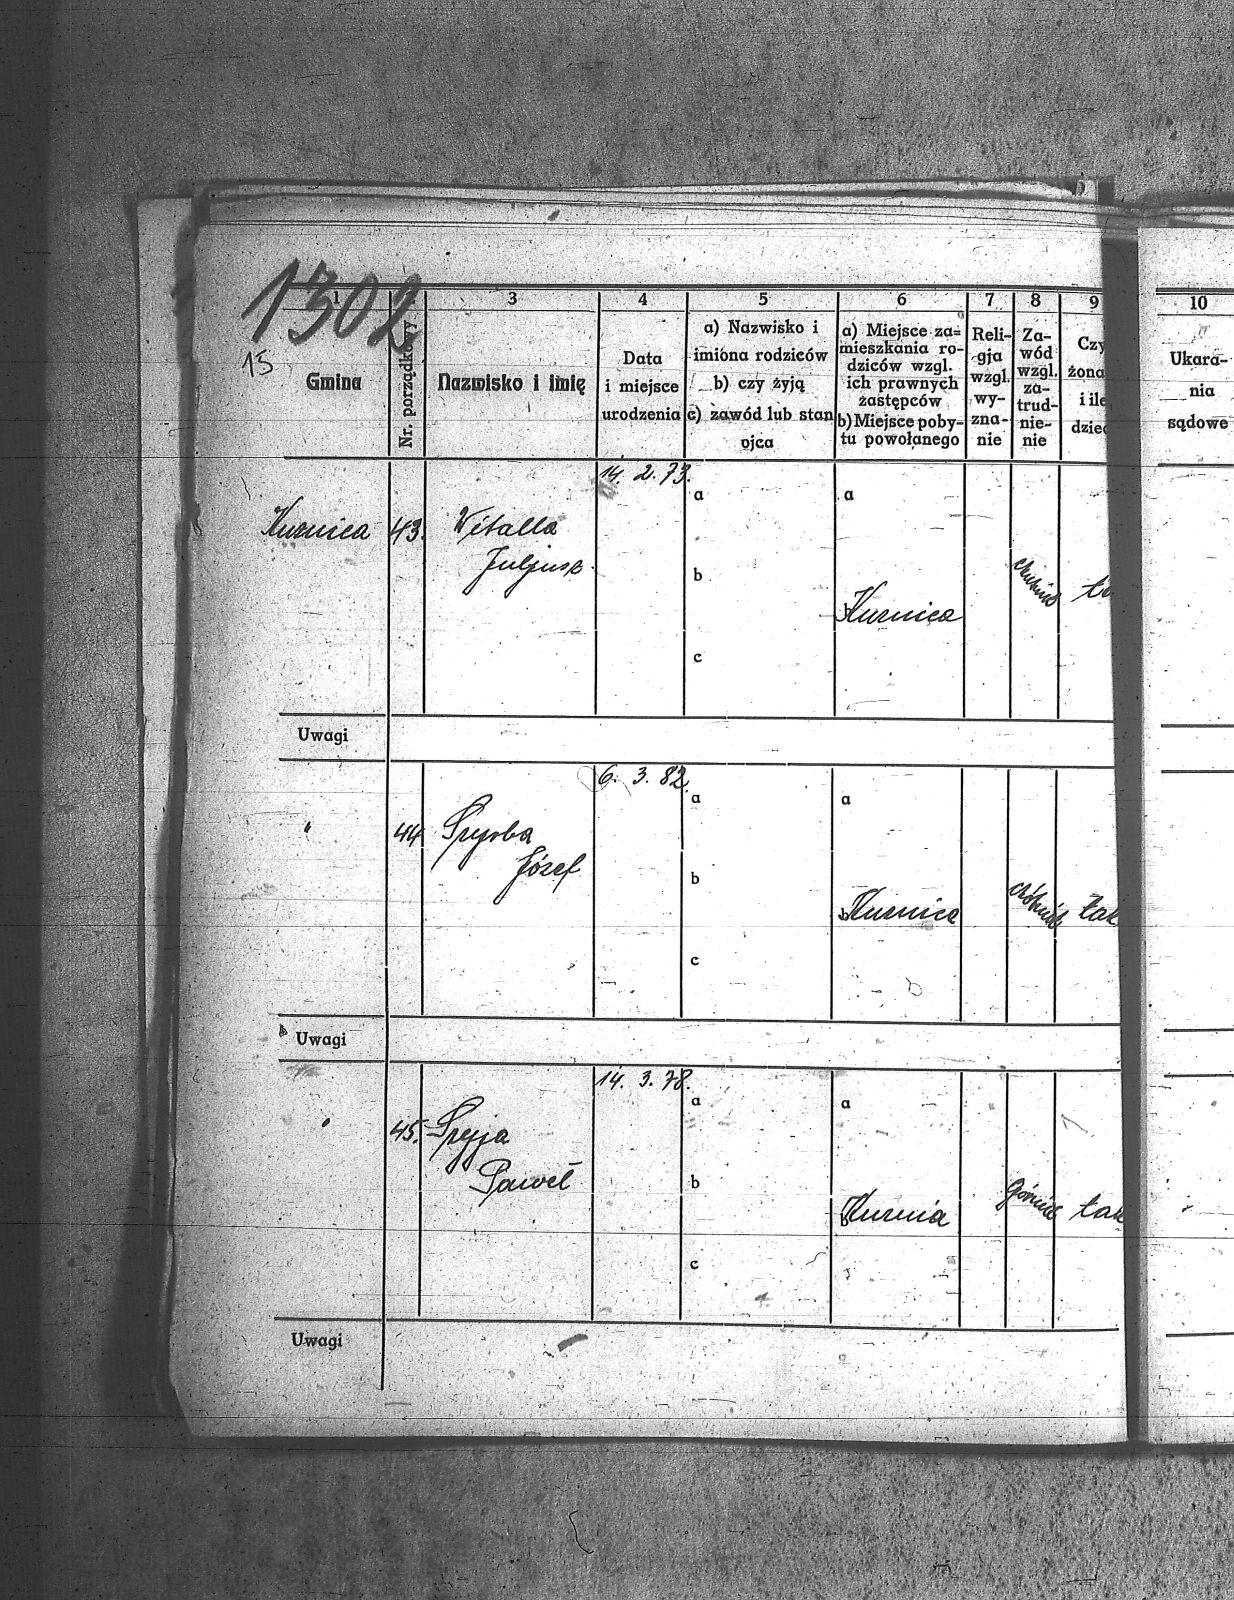 1302
15
1
3
4
5
6
7
8
9
10
Gmina
Nr. porządkowy
Nazwisko i imię
Data
i miejsce
urodzenia
a) Nazwisko i
imiona rodziców
b) czy żyją
c) zawód lub stan
ojca
a) Miejsce za=
mieszkania ro-
dziców wzgl.
ich prawnych
zastępców
b) Miejsce poby-
tu powołanego
Reli-
gja
wzgl.
wy-
zna-
nie
Za-
wód
wzgl.
za-
trud-
nie-
nie
Czy
żona
i ile
dziec
Ukara-
nia
sądowe
Kuznica
43.
Witalla
Juljusz.
14. 2. 73.
a
b
c
a
b
Kuznica
Uwagi
"
44
Józef
6. 3. 82.
a
b
c
a
b
Kuznica
tak
Uwagi
"
45.
Paweł
14. 3. 78.
a
b
c
a
b
Kuznia
Górnik
tak
Uwagi